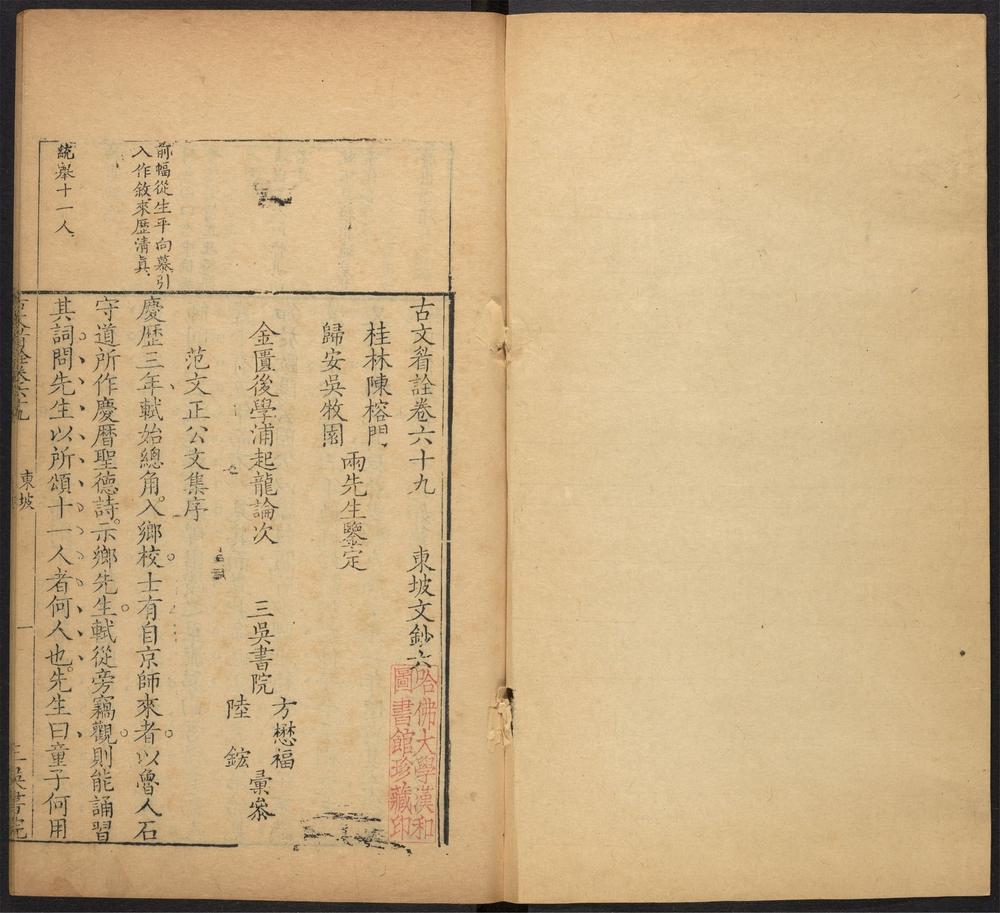 古文眉詮卷六十九 東坡文鈔六
哈佛大學漢和
圖書館珍藏印
桂林陳榕門
歸安吳牧園
兩先生鑒定
金匱後學浦起龍論次
三吳書院
方懋福
陸 鋐
彙參
范文正公文集序
前幅從生平向慕引
入作敘來歷清真
慶歷三年軾始總角入鄉校士有自京師來者以魯人石
守道所作慶曆聖德詩示鄉先生軾從旁竊觀則能誦習
統舉十一人
其詞問先生以所頌十一人者何人也先生曰童子何用
東坡
一
三吳書院